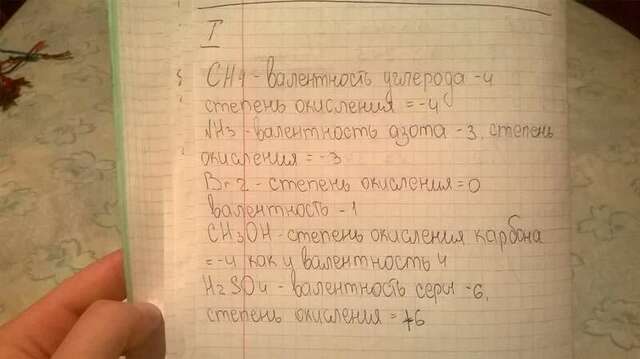 I
CH4 - валентность углерода - 4
степень окисления = -4
NH3 - валентность азота - 3, степень
окисления = -3
Br2 - степень окисления = 0
валентность - 1
CH3OH - степень окисления карбона
= -4 как и валентность 4
H2SO4 - валентность серы - 6,
степень окисления = +6